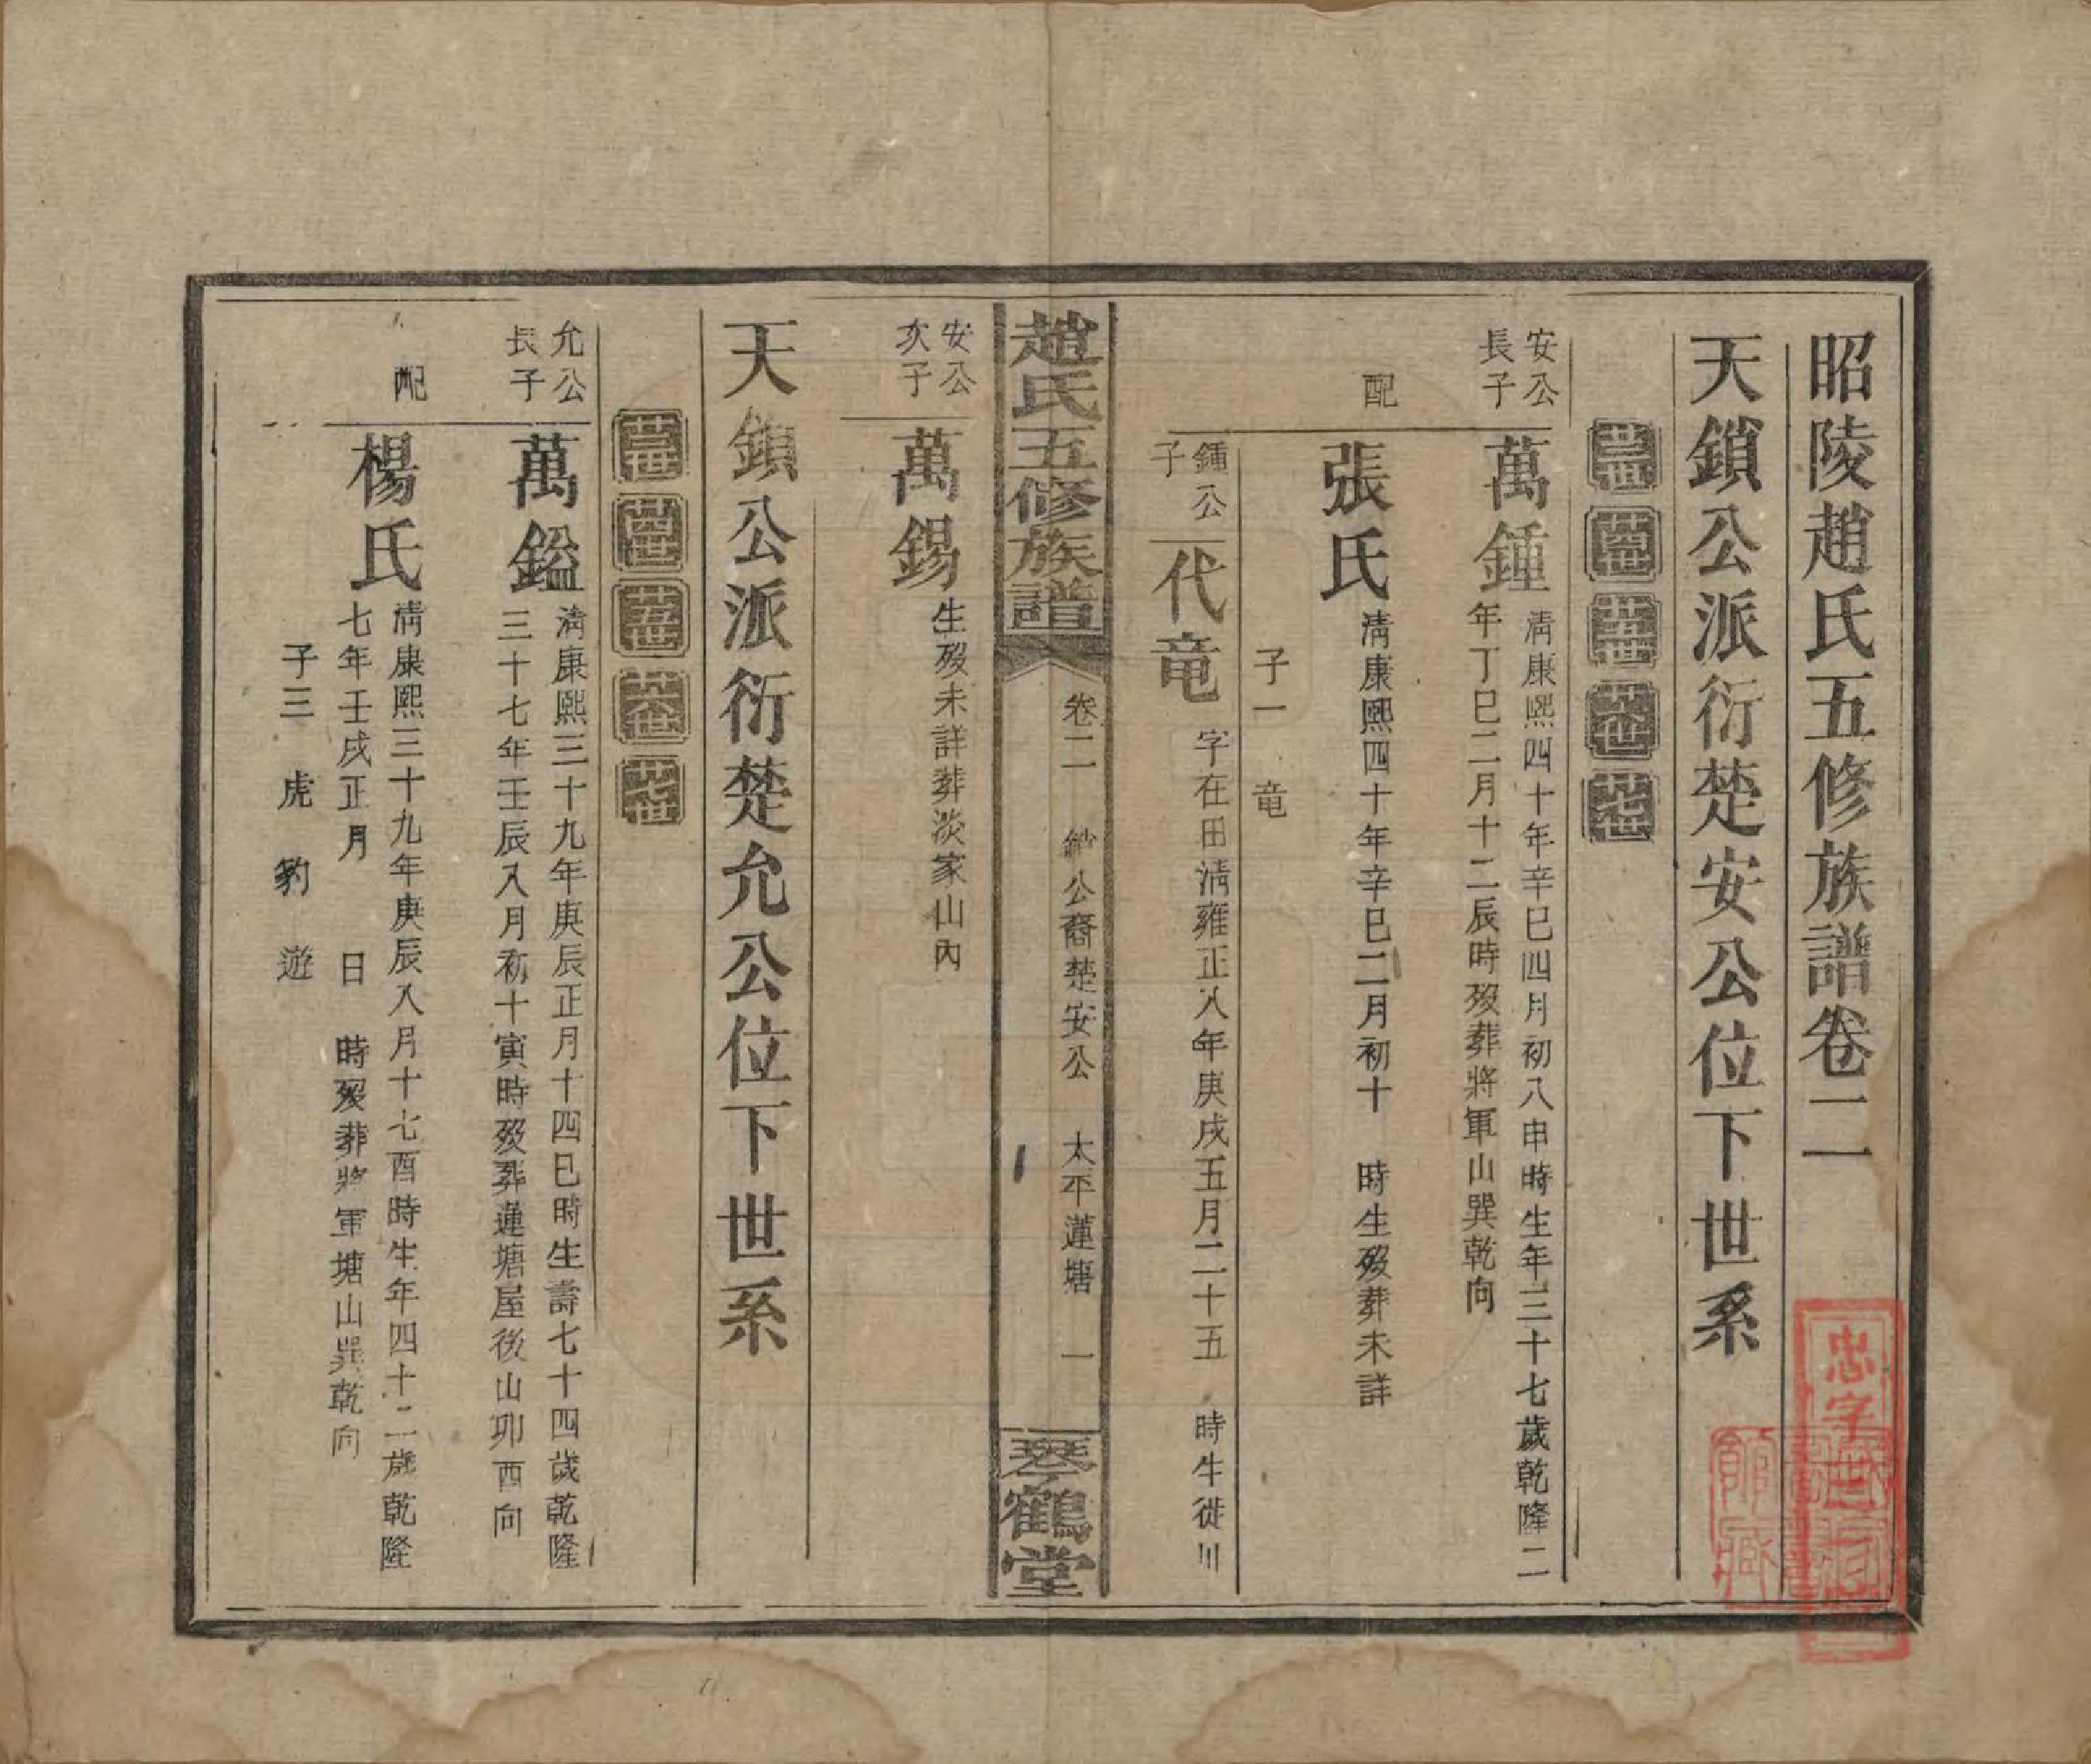 昭陵趙氏五修族譜卷二
天鎖公派衍楚安公位下世系
廿三世 廿四世 廿五世 廿六世 廿七世
安公長子
萬鍾
清康熙四十年辛巳四月初八申時生年三十七歲乾隆二
年丁巳二月十二辰時歿葬將軍山巽乾向
配
張氏
清康熙四十年辛巳二月初十 時生歿葬未詳
子一 竜
鍾公子
代竜
字在田清雍正八年庚戌五月二十五 時生徙川
趙氏五修族譜
卷二 鈔公裔楚安公 太平蓮塘 一
琴鶴堂
安公次子
萬錫
生歿未詳葬淡家山內
天鎖公派衍楚允公位下世系
廿三世 廿四世 廿五世 廿六世 廿七世
允公長子
萬鎰
清康熙三十九年庚辰正月十四巳時生壽七十四歲乾隆
三十七年壬辰八月初十寅時歿葬蓮塘屋後山卯酉向
配
楊氏
清康熙三十九年庚辰八月十七酉時生年四十二歲乾隆
七年壬戌正月 日 時歿葬將軍塘山巽乾向
子三 虎 豹 遊
忠字